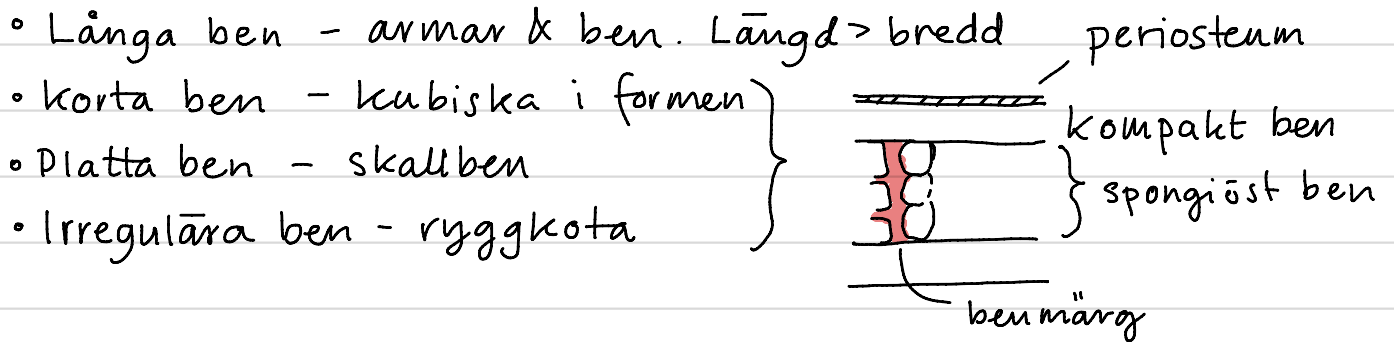 • Långa ben - armar & ben. Längd > bredd
• Korta ben - kubiska i formen
• Platta ben - skallben
• Irregulära ben - ryggkota
periosteum
kompakt ben
spongiöst ben
benmärg